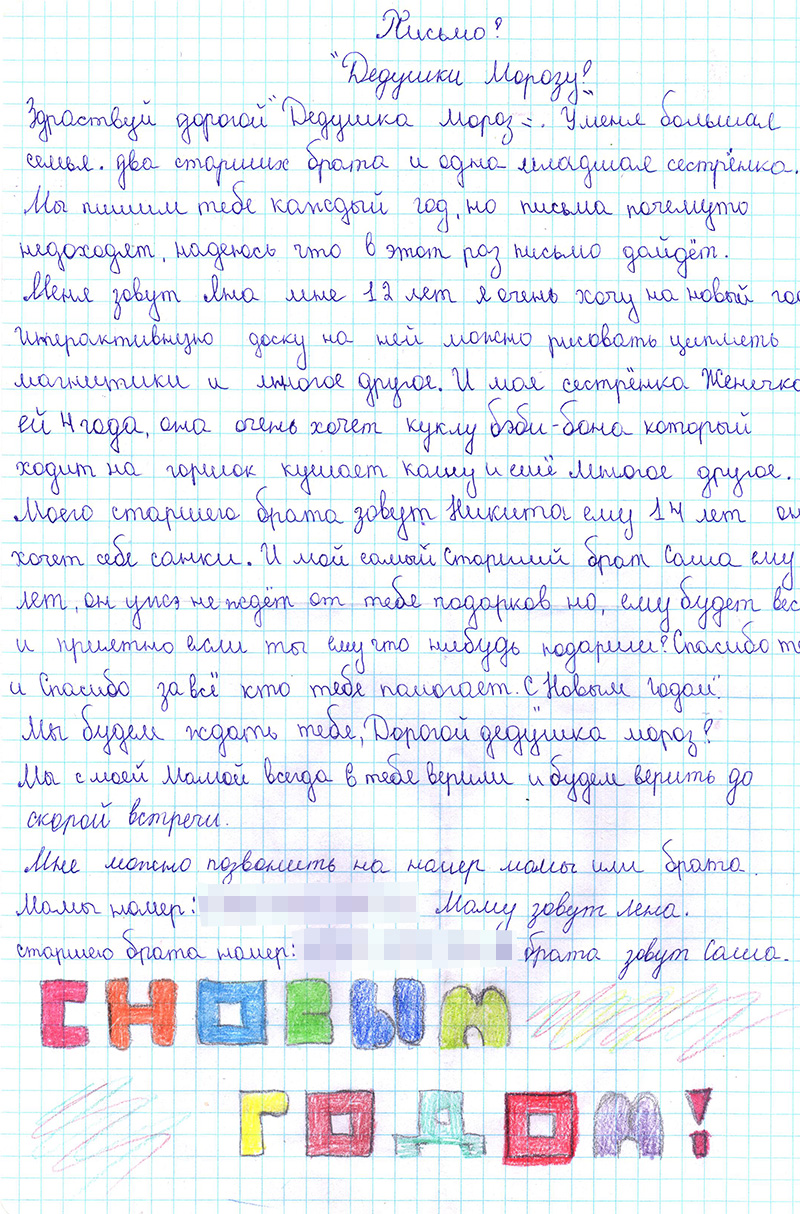 Письмо?
"Дедушки Морозу?
Здраствуй дорогой "Дедушка мороз". У меня большая
семья. два старших брата и одна младшая сестрёнка.
Мы пишим тебе каждый год, но письма почемуто
недоходят, надеюсь что в этот роз письмо дойдёт.
Меня зовут Яна мне 12 лет я очень хочу на новый го
Интерактивную доску на ней можно рисовать циплять
магнитики и многое другое. И моя сестрёнка Женечка
ей 4 года, она очень хочет куклу бэби-бона который
ходит на горшок кушает кашу и ещё многое другое.
Моего старшего брата зовут Никита ему 14 лет он
хочет себе санки. И мой самый Старший брат Саша ему
лет, он уже не ждёт от тебе подарков но, ему будет вес
и приятно если ты ему что нибудь подариш? Спасибо те
и Спасибо за всё кто тебе памогает. С Новым годом".
Мы будем ждать тебе, "Дорогой дедушка мороз?
Мы с моей Мамой всегда в тебе верили и будем верить до
скорой встречи.
Мне можно позвонить на номер мамы или брата.
Мамы номер: Маму зовут лена.
старшего брата номер: брата зовут Саша.
С НОВЫМ
ГОДОМ!